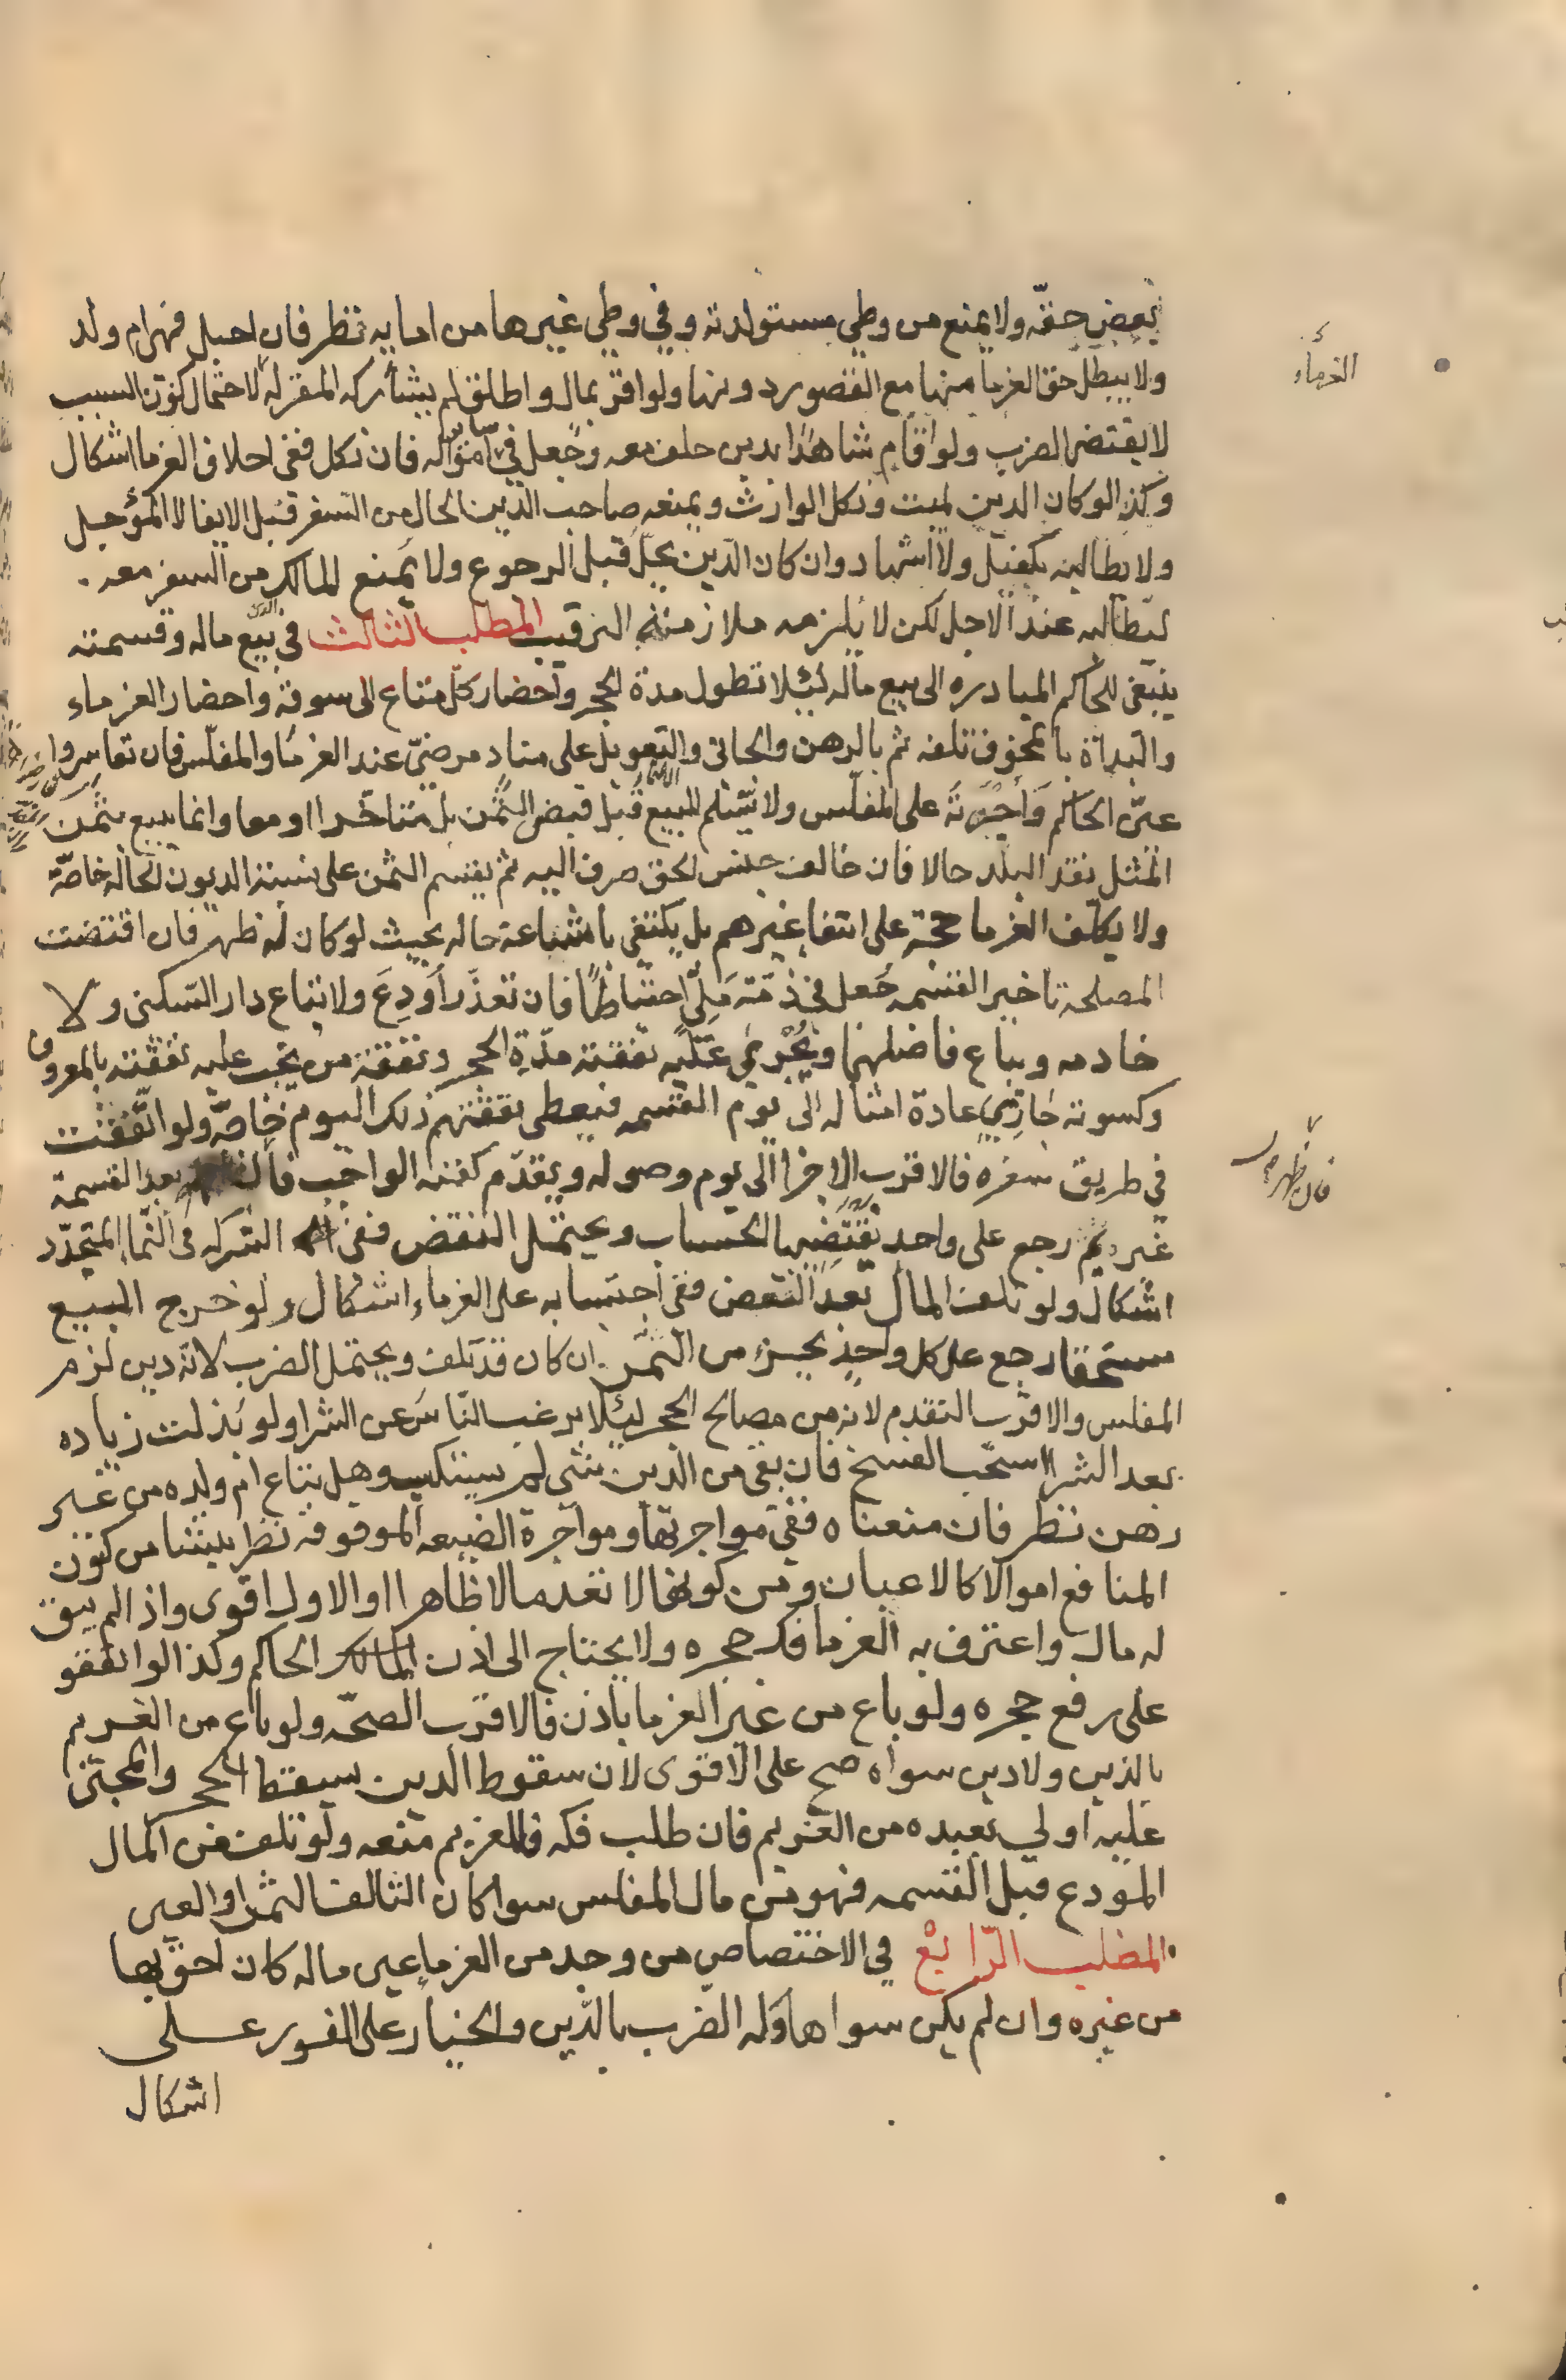 بعض حقه ولا يمنع من وطي مستولدته وفي وطي غيرها من امايه نظر فان احبل فهي ام ولد
ولا يبطل حق الغرما منها مع القصور دونها ولو اقر بمال واطلق لم يشاركه المقر له لاحتمال كون السبب
لا يقتضي الضرب ولو اقام شاهدا بدين حلف معه وجعل في ساير امواله فان نكل ففي احلاف الغرما اشكال
وكذا لو كان الدين لميت ونكل الوارث ويمنعه صاحب الدين الحال من السفر قبل الايفا لا المؤجل
ولا يطالبه بكفيل ولا اشهاد وان كان الدين يحل قبل الرجوع ولا يمنع المالك من السفر معه
ليطالبه عند الاجل لكن لا يلزمه ملازمته الرقيب المطلب الثالث في بيع ماله وقسمته
ينبغي للحاكم المبادره الى بيع ماله لئلا تطول مدة الحجر واحضار كل متاع الى سوقه واحضار الغرماء
والبداة بالمخوف تلفه ثم بالرهن والجاني والتعويل على مناد مرضي عند الغرما والمفلس فان تعاسروا
عين الحاكم واجرته على المفلس ولا يتسلم المبيع قبل قبض الثمن بل متاخرا او معا وانما يبيع بثمن
المثل نقد البلد حالا فان خالف جنس الحق صرف اليه ثم يقسم الثمن على نسبة الديون الحالة خاصة
ولا يكلف الغرما حجة على انتفا غيرهم بل يكتفي باشاعة حاله بحيث لو كان له ظهر فان اقتضت
المصلحة تاخير القسمه جعل في ذمة ملي احتياطا فان تعذر اودع ولا تباع دار السكنى ولا
خادمه ويباع فاضلهما ويجري عليه نفقته مدة الحجر ونفقة من يجب عليه نفقته بالمعروف
وكسوته جاري عادة امثاله الى يوم القسمه فيعطى نفقتهم ذلك اليوم خاصة ولو اتفقت
في طريق سفره فالاقرب الاجرا الى يوم وصوله ويقدم كفنه الواجب فان بعد القسمة
غريم رجع على واحد نقتضيها بالحساب ويحتمل النقض ففي الشركه في النما المتجدد
اشكال ولو تلف المال بعد النقض ففي احتسابه على الغرماء اشكال ولو خرج المبيع
مستحقا رجع على كل واحد بجزء من الثمن ان كان قد تلف ويحتمل الضرب لانه دين لزم
المفلس والاقرب التقدم لانه من مصالح الحجر لئلا يرغب الناس عن الشرا ولو بذلت زياده
بعد الشرا استحب الفسخ فان بقي من الدين شي لم يستكسب وهل يباع ام ولده من غير
رهن نظر فان منعناه ففي مواجرتها ومواجرة الضيعه الموقوفة نظر ينشا من كون
المنافع اموالا كالاعيان ومن كونها لا تعد مالا ظاهرا والاول اقوى واذا لم يبق
له مال واعترف به الغرما فك حجره ولا يحتاج الى اذن الحاكم وكذا لو اتفقو
على رفع حجره ولو باع من غير الغرما باذن فالاقرب الصحه ولو باع من الغريم
بالدين ولا دين سواه صح على الاقوى لان سقوط الدين يسقط الحجر والمجني
عليه اولى بعبده من الغريم فان طلب فكه فللغريم منعه ولو تلف من المال
المودع قبل القسمه فهو من مال المفلس سوا كان التالف الثمن او العين
المطلب الرابع في الاختصاص من وجد من الغرما عين ماله كان احق بها
من غيره وان لم يكن سواها وله الضرب بالدين والخيار على الفور على
اشكال
الغرماء
فان ظهر